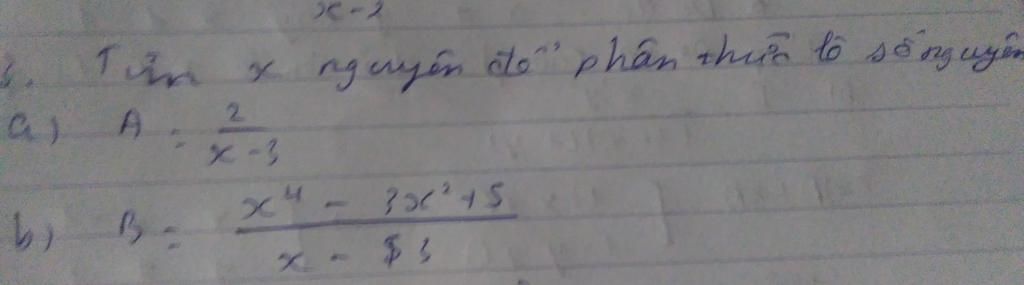 x-2
Tìm x nguyên để phân thức là số nguyên
a) A = 2/(x-3)
b) B = (x⁴ - 3x² + 5)/(x - 3)